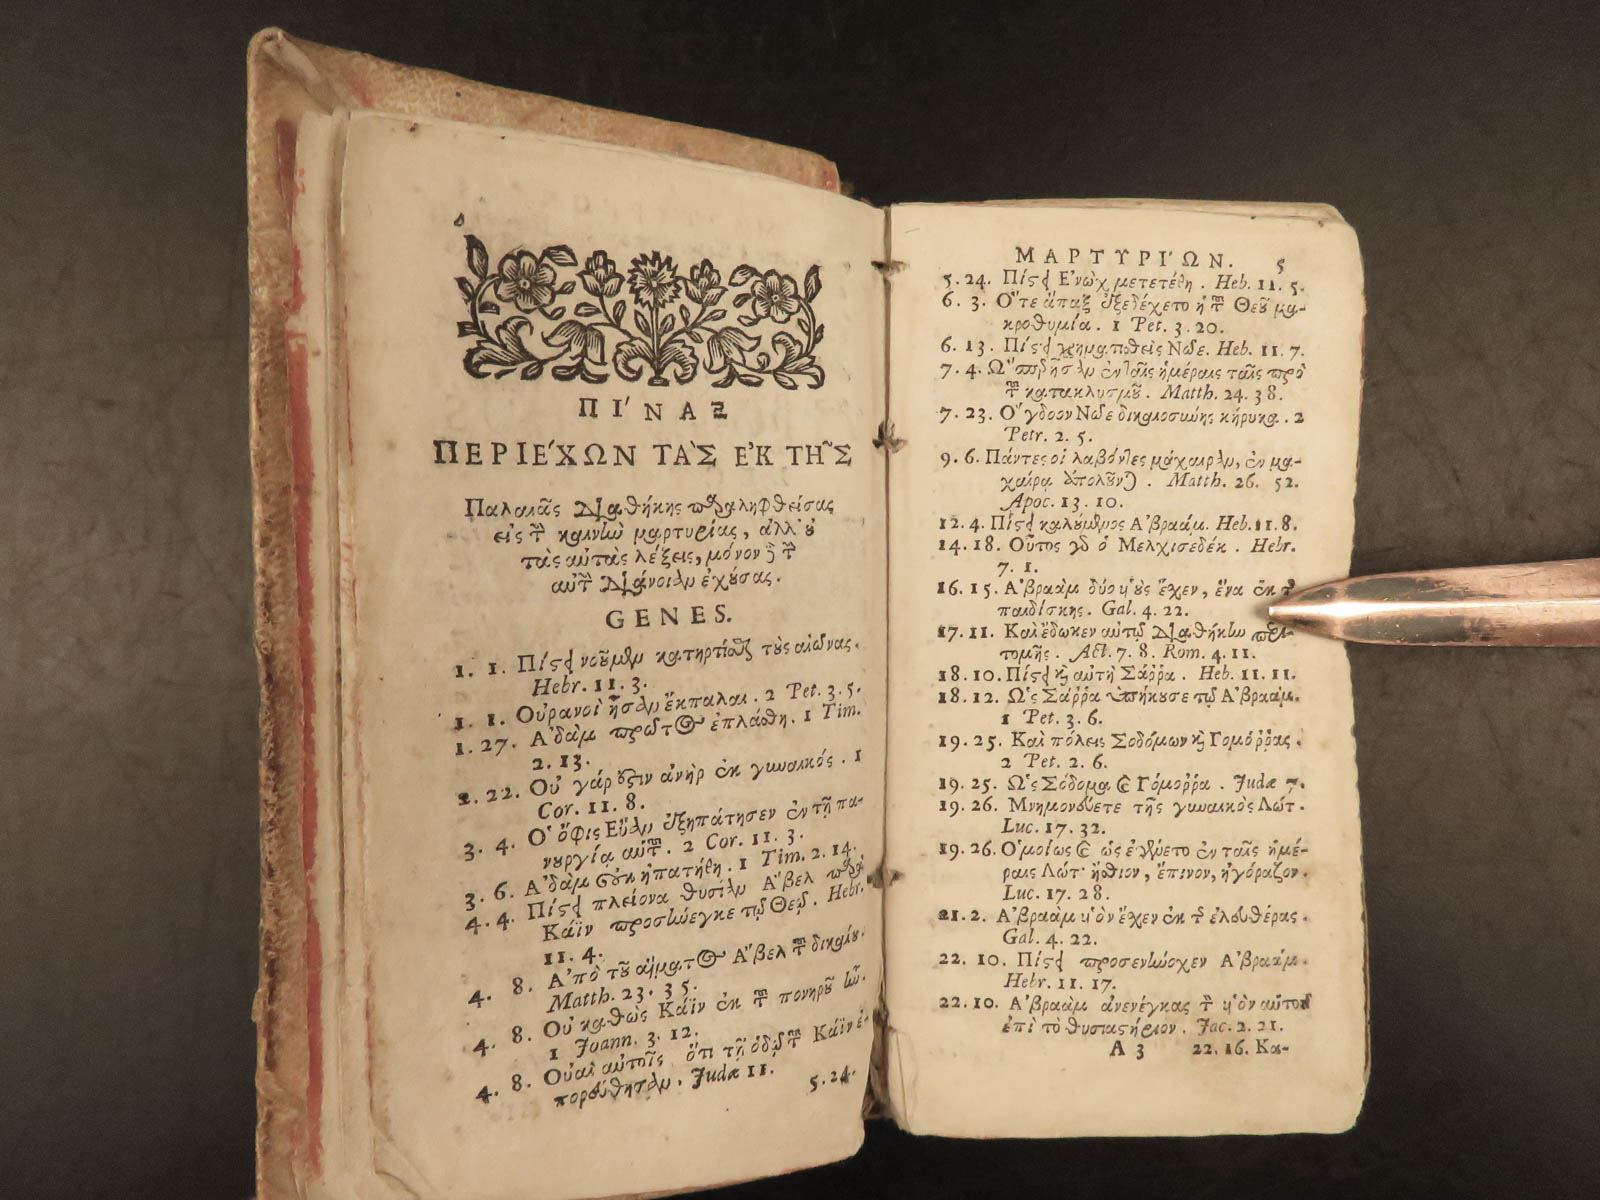 ΠΙ´ΝΑΞ
ΠΕΡΙΕ´ΧΩΝ ΤΑ`Σ Ε᾿Κ ΤΗ῀Σ
Παλαιᾶς Διαθήκης παραληφθείσας
εἰς τὴν καινὴν μαρτυρίας, ἀλλ' οὐ
τὰς αὐτὰς λέξεις, μόνον δὲ τὴν
αὐτὴν Διάνοιαν ἐχούσας.
GENES.
1. 1. Πίστει νοοῦμεν κατηρτίσθαι τοὺς αἰῶνας.
Hebr. 11. 3.
1. 1. Οὐρανοὶ ἦσαν ἔκπαλαι. 2 Pet. 3. 5.
1. 27. Ἀδὰμ πρῶτος ἐπλάσθη. 1 Tim.
2. 13.
2. 22. Οὐ γάρ ἐστιν ἀνὴρ ἐκ γυναικός. 1
Cor. 11. 8.
3. 4. Ὁ ὄφις Εὔαν ἐξηπάτησεν ἐν τῇ πα-
νουργίᾳ αὐτοῦ. 2 Cor. 11. 3.
3. 6. Ἀδὰμ οὐκ ἠπατήθη. 1 Tim. 2. 14.
4. 4. Πίστει πλείονα θυσίαν Ἄβελ παρὰ
Κάϊν προσήνεγκε τῷ Θεῷ. Hebr.
11. 4.
4. 8. Ἀπὸ τοῦ αἵματος Ἄβελ τοῦ δικαίου.
Matth. 23. 35.
4. 8. Οὐ καθὼς Κάϊν ἐκ τοῦ πονηροῦ ἦν.
1 Joann. 3. 12.
4. 8. Οὐαὶ αὐτοῖς ὅτι τῇ ὁδῷ τοῦ Κάϊν ἐ-
πορεύθησαν. Judæ 11.
5. 24.
ΜΑΡΤΥΡΙ´ΩΝ. 5
5. 24. Πίστει Ἐνὼχ μετετέθη. Heb. 11. 5.
6. 3. Ὅτε ἅπαξ ἐξεδέχετο ἡ τοῦ Θεοῦ μα-
κροθυμία. 1 Pet. 3. 20.
6. 13. Πίστει χρηματισθεὶς Νῶε. Heb. 11. 7.
7. 4. Ὥσπερ ἦσαν ἐν ταῖς ἡμέραις ταῖς πρὸ
τοῦ κατακλυσμοῦ. Matth. 24. 38.
7. 23. Ὄγδοον Νῶε δικαιοσύνης κήρυκα. 2
Petr. 2. 5.
9. 6. Πάντες οἱ λαβόντες μάχαιραν, ἐν μα-
χαίρᾳ ἀπολοῦνται. Matth. 26. 52.
Apoc. 13. 10.
12. 4. Πίστει καλούμενος Ἀβραάμ. Heb. 11. 8.
14. 18. Οὗτος γὰρ ὁ Μελχισεδέκ. Hebr.
7. 1.
16. 15. Ἀβραὰμ δύο υἱοὺς ἔχεν, ἕνα ἐκ τῆς
παιδίσκης. Gal. 4. 22.
17. 11. Καὶ ἔδωκεν αὐτῷ Διαθήκην περι-
τομῆς. Act. 7. 8. Rom. 4. 11.
18. 10. Πίστει καὶ αὐτὴ Σάῤῥα. Heb. 11. 11.
18. 12. Ὡς Σάῤῥα ὑπήκουσε τῷ Ἀβραάμ.
1 Pet. 3. 6.
19. 25. Καὶ πόλεις Σοδόμων καὶ Γομόῤῥας.
2 Pet. 2. 6.
19. 25. Ὡς Σόδομα καὶ Γόμοῤῥα. Judæ 7.
19. 26. Μνημονεύετε τῆς γυναικὸς Λώτ.
Luc. 17. 32.
19. 26. Ὁμοίως καὶ ὡς ἐγένετο ἐν ταῖς ἡμέ-
ραις Λώτ· ἤσθιον, ἔπινον, ἠγόραζον.
Luc. 17. 28.
21. 2. Ἀβραὰμ υἱὸν ἔχεν ἐκ τῆς ἐλευθέρας.
Gal. 4. 22.
22. 10. Πίστει προσενήνοχεν Ἀβραάμ.
Hebr. 11. 17.
22. 10. Ἀβραὰμ ἀνενέγκας τὸν υἱὸν αὐτοῦ
ἐπὶ τὸ θυσιαστήριον. Jac. 2. 21.
A 3 22. 16. Κα-